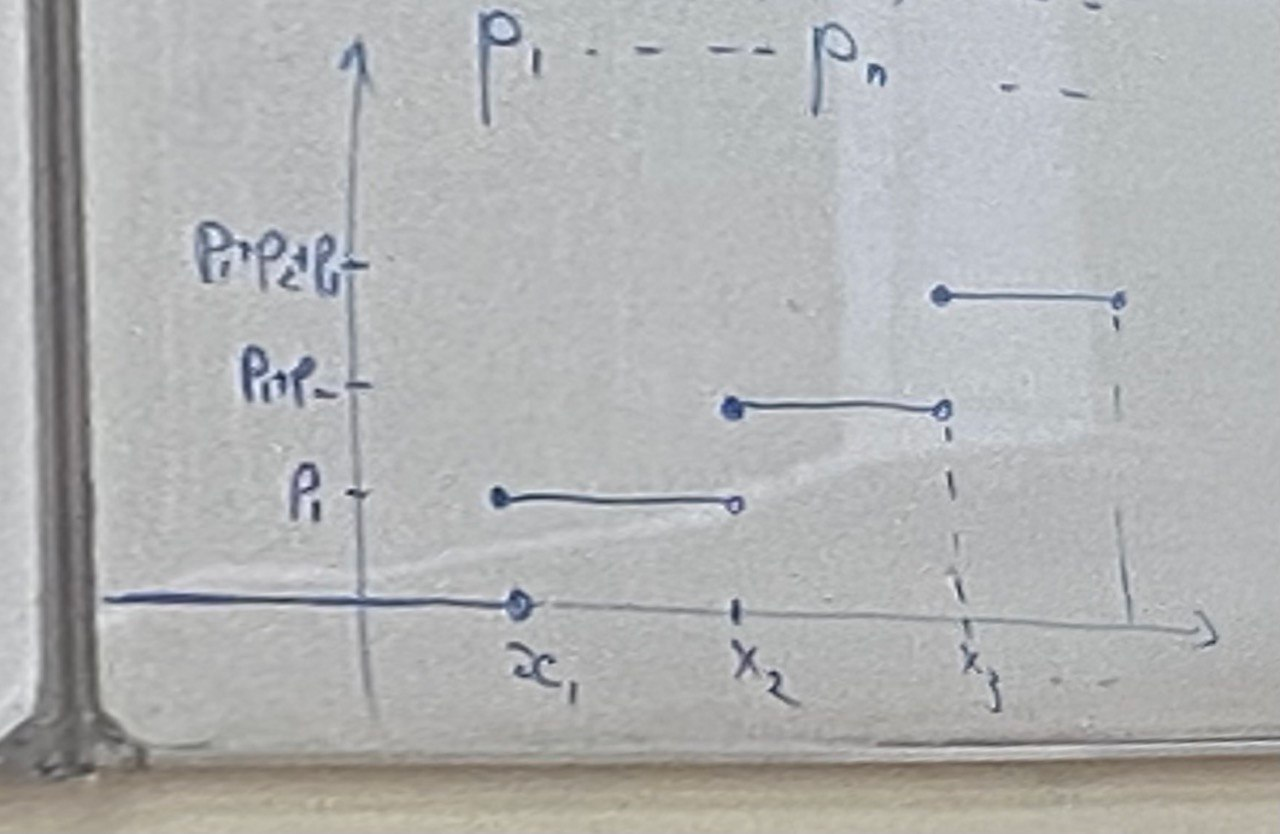 p₁ . - -- pₙ - -
P₁+P₂+P₃
P₁+P₂
P₁
x₁ x₂ x₃ ...